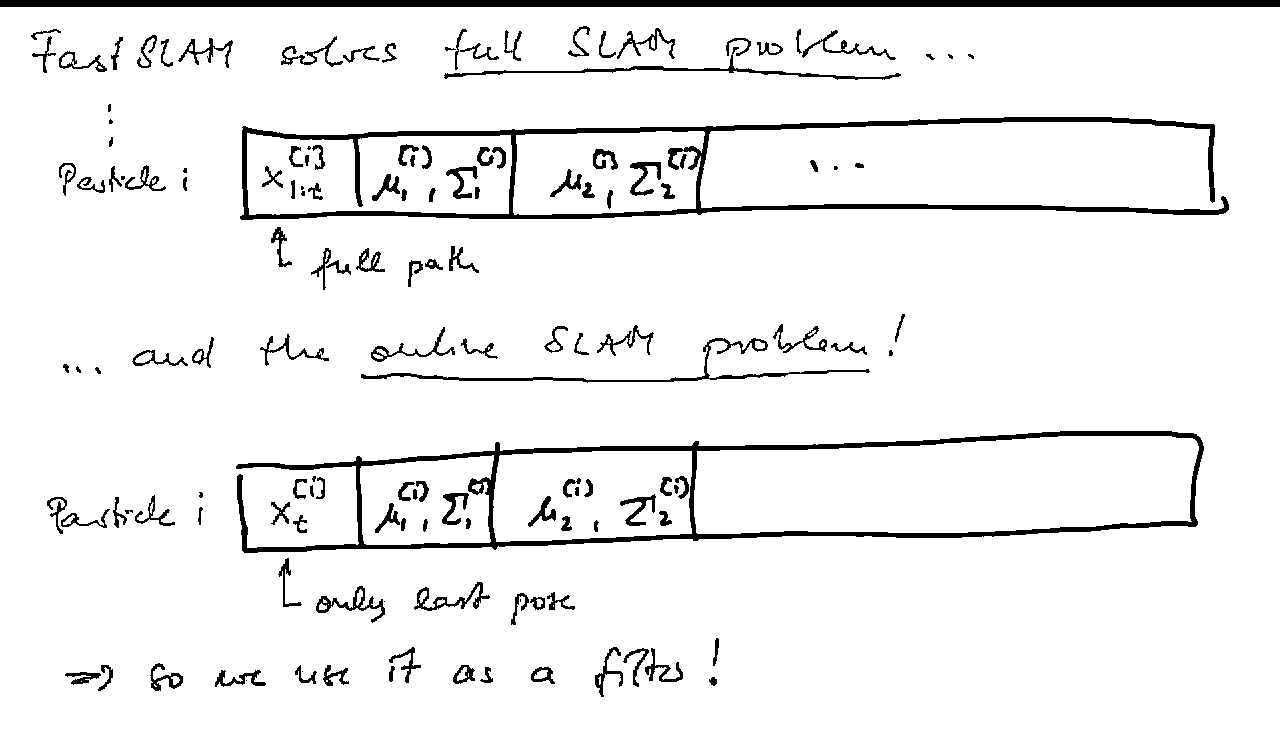 FastSLAM solves full SLAM problem ...
⋮
Particle i x_{1:t}^{[i]} μ_1^{[i]}, Σ_1^{[i]} μ_2^{[i]}, Σ_2^{[i]} ...
full path
... and the online SLAM problem!
Particle i x_t^{[i]} μ_1^{[i]}, Σ_1^{[i]} μ_2^{[i]}, Σ_2^{[i]}
only last pose
⇒ so we use it as a filter!